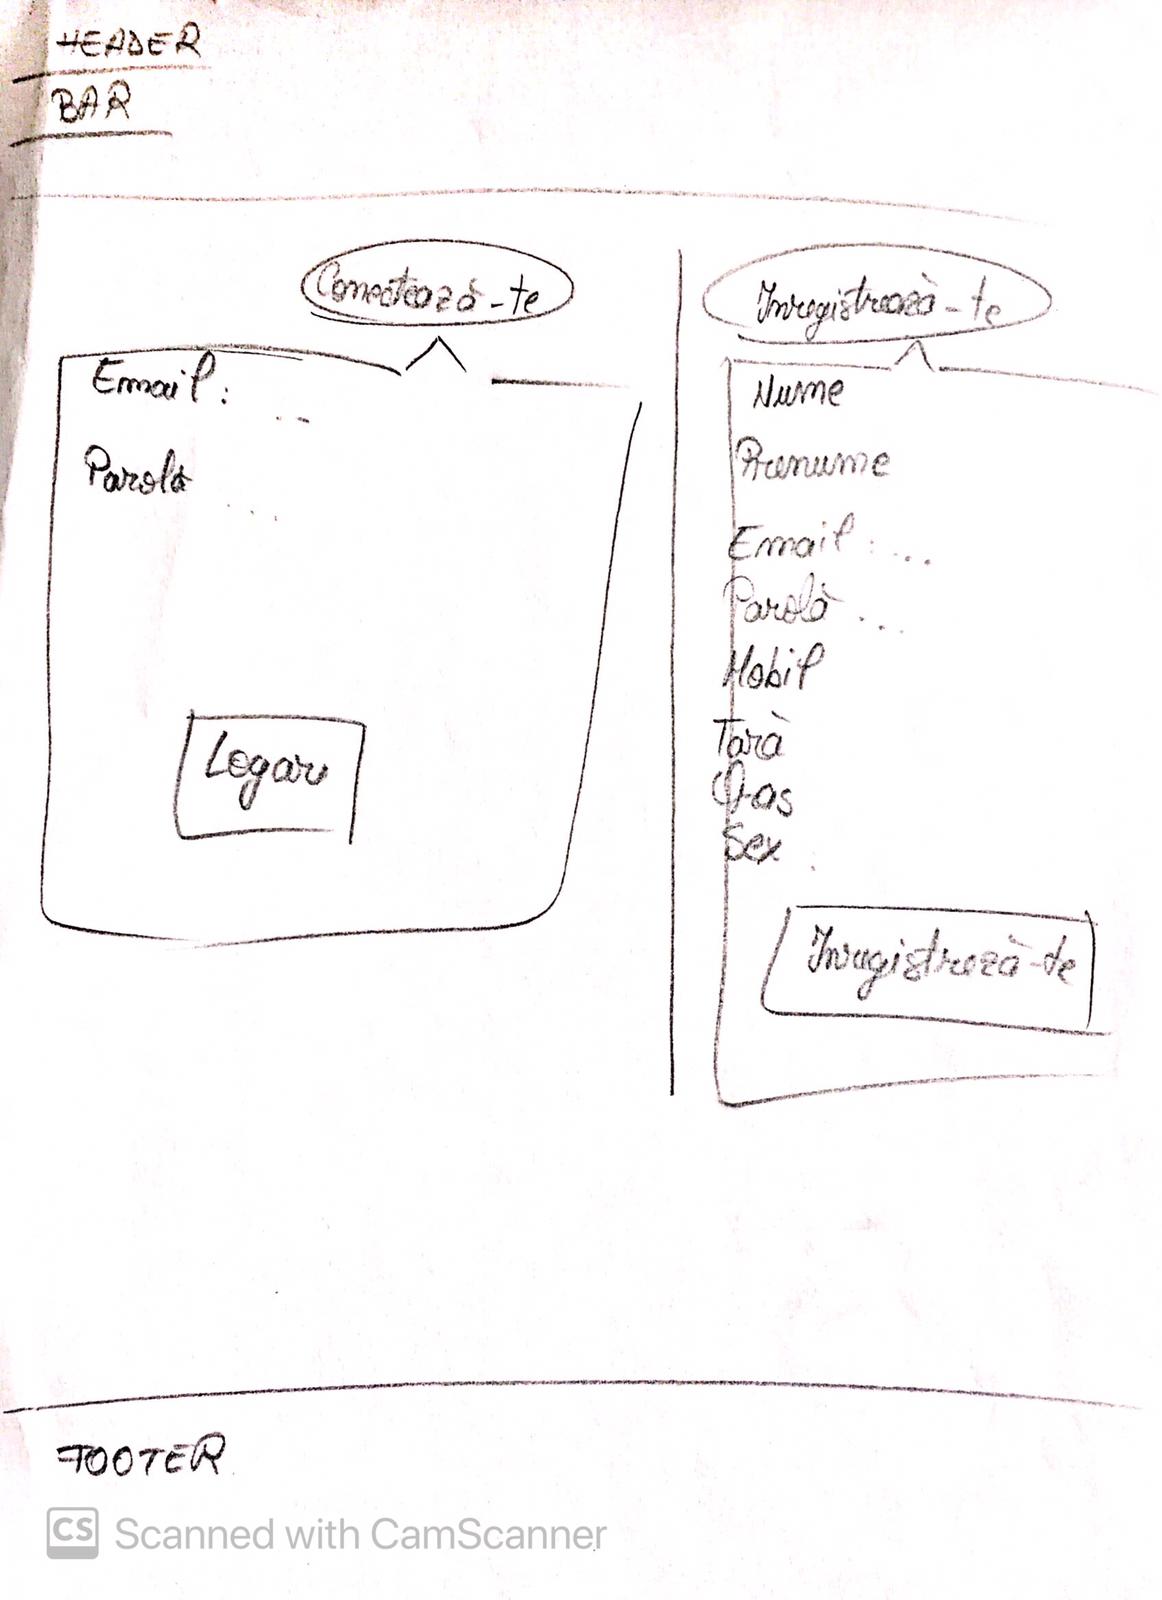 HEADER
BAR
Conectează-te
Email: ..
Parolă
....
Logare
Inregistrează-te
Nume
Prenume
Email: ...
Parolă ...
Mobil
Tară
Oras
Sex
Inregistreză-te
FOOTER
CS Scanned with CamScanner